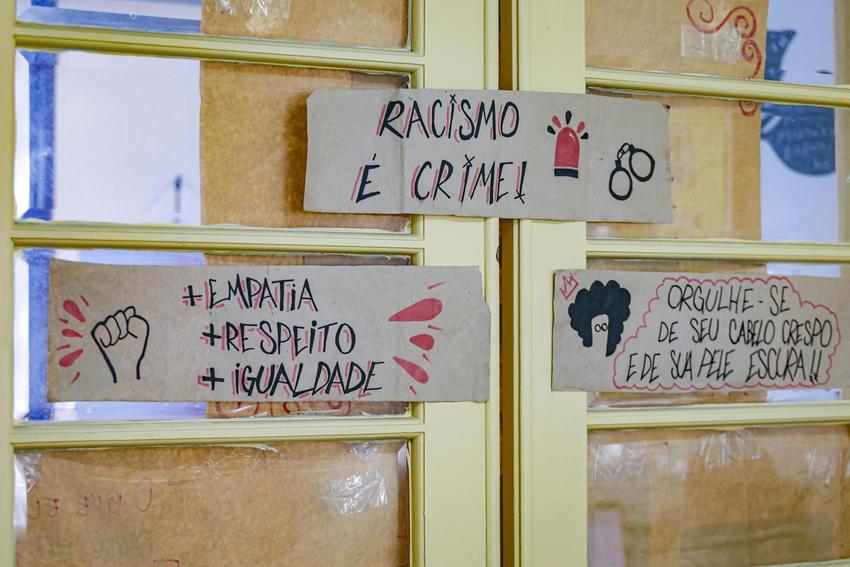 RACISMO
É CRIME!
+EMPATIA
+RESPEITO
+IGUALDADE
ORGULHE-SE
DE SEU CABELO CRESPO
E DE SUA PELE ESCURA!!